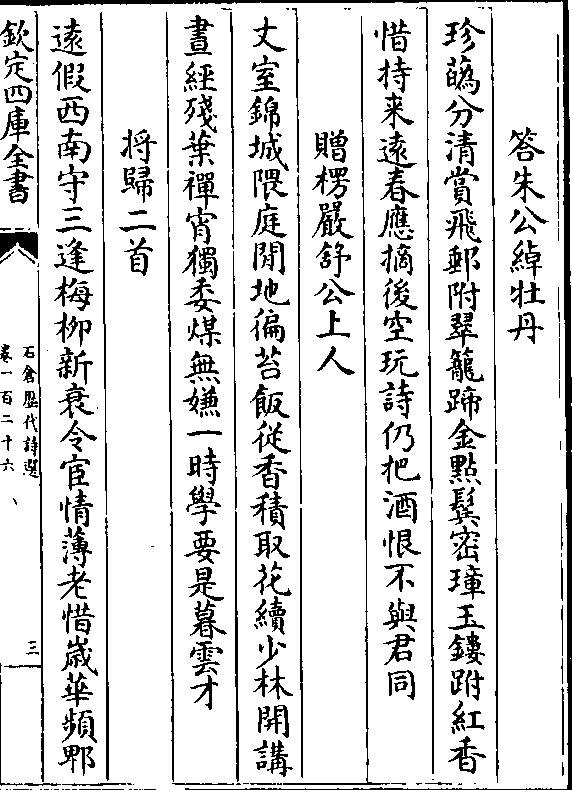 答朱公綽牡丹
珍蘤分清賞飛郵附翠籠蹄金㸃鬓密璋玉鏤跗紅香
惜持来逺春應摘後空玩詩仍把酒恨不與君同
贈楞嚴舒公上人
丈室錦城隈庭閒地偏苔飯從香積取花續少林開講
晝經殘葉禪宵獨委煤無嫌一時學要是暮雲才
将歸二首
逺假西南守三逢梅柳新衰令宦情薄老惜嵗華頻郫
欽定四庫全書
石倉歴代詩選
卷一百二十六
三